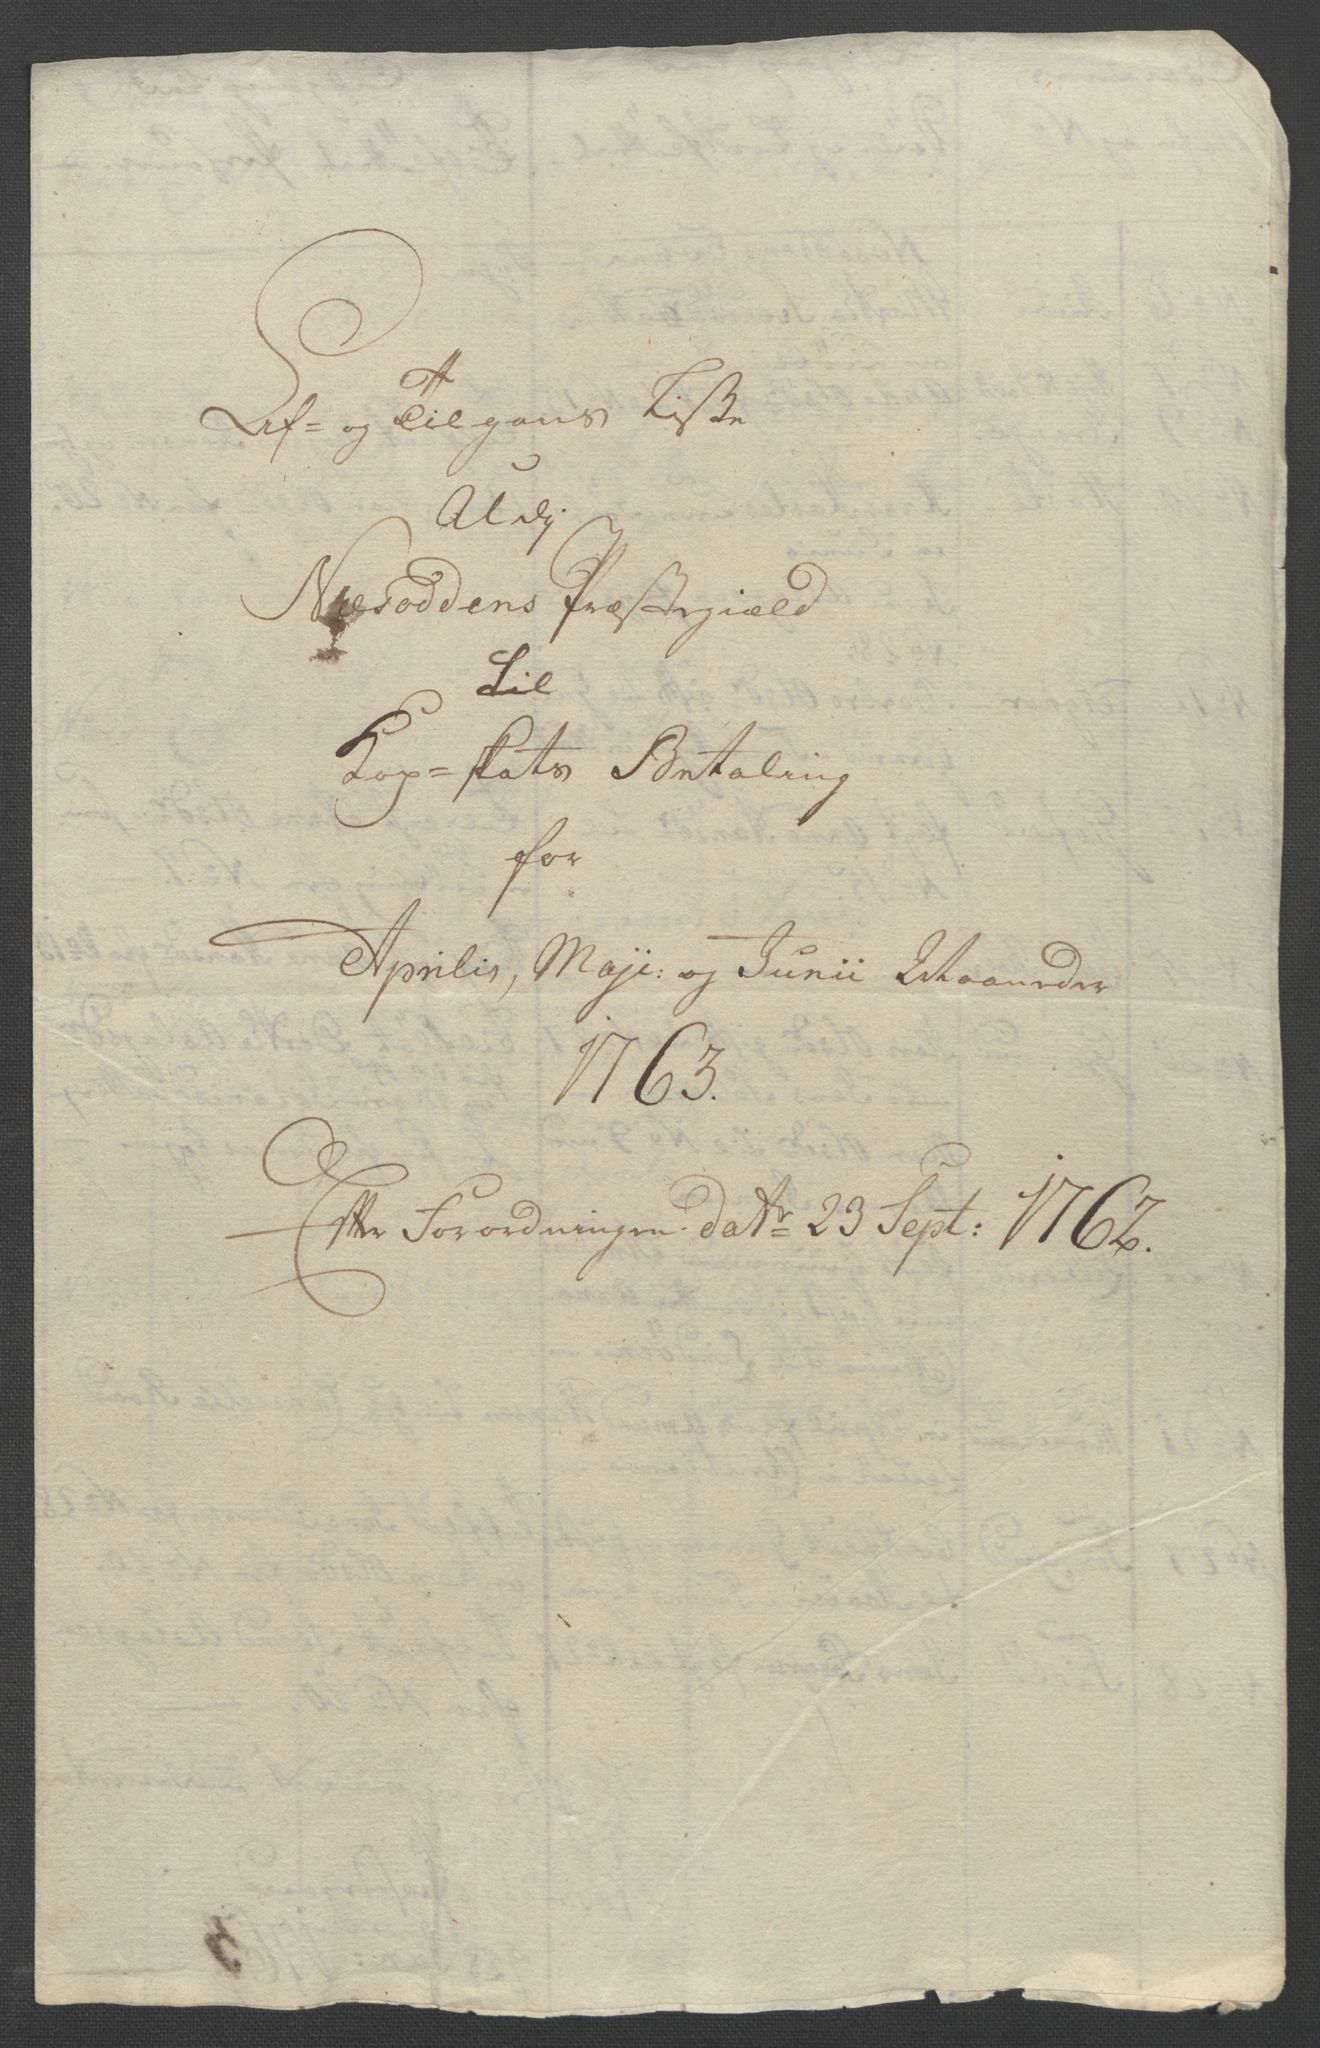 Af= og Tilgangs Liste
Udj
Næsoddens Præstegiæld
Til
Kop=skats Betaling
for
Aprilis, Maji: og Junii Maaneder
1763.
Efter Forordningen datr 23 Sept: 1762.